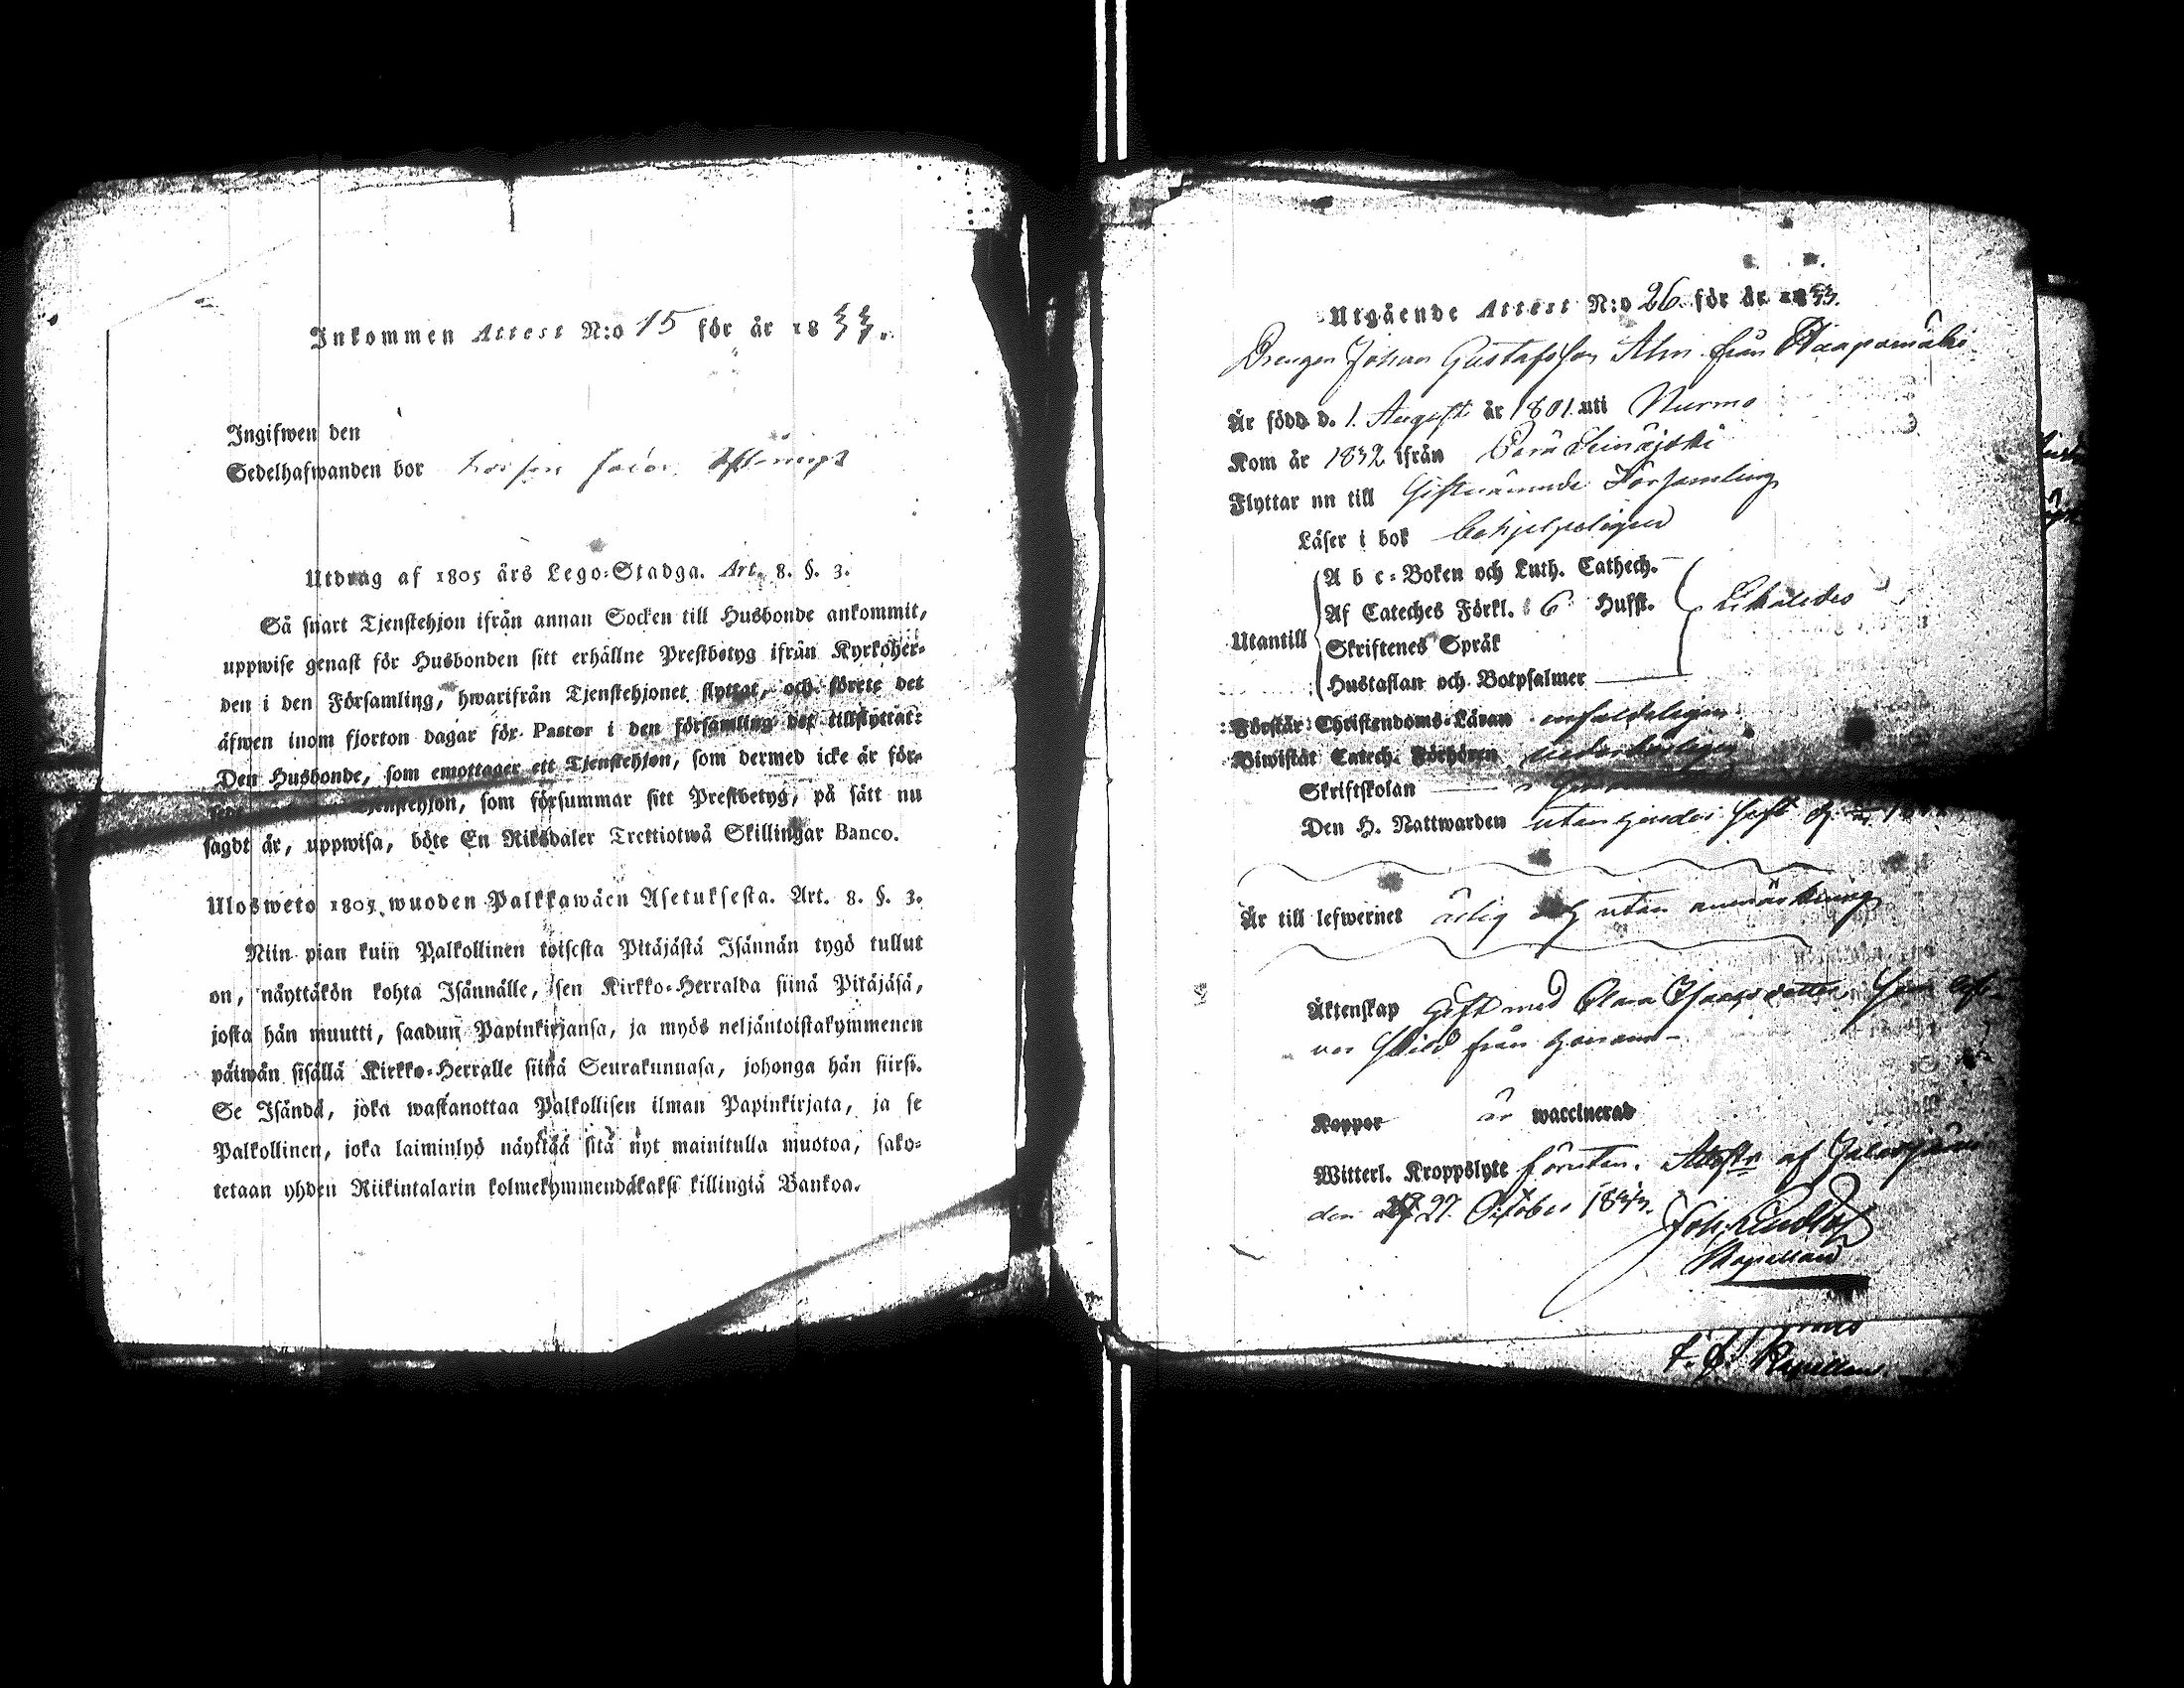 Inkommen Attest N:o 15 för år 1833.
Ingifwen den
Sedelhafwanden bor
Utdrag af 1805 års Lego-Stadga. Art. 8. §. 3.
Så snart Tjenstehjon ifrån annan Socken till Husbonde ankommit,
uppwise genast för Husbonden sitt erhållne Prestbetyg ifrån Kyrkoher-
den i den Församling, hwarifrån Tjenstehjonet flyttat, och förete det
äfwen inom fjorton dagar för Pastor i den församling det tillflyttat:
Den Husbonde, som emottager ett Tjenstehjon, som dermed icke är för-
Tjenstehjon, som försummar sitt Prestbetyg, på sätt nu
sagdt är, uppwisa, böte En Riksdaler Trettiotwå Skillingar Banco.
Ulosweto 1805 wuoden Palkkawäen Asetuksesta. Art. 8. §. 3.
Niin pian kuin Palkollinen toisesta Pitäjästä Isännän tygö tullut
on, näyttäkön kohta Isännälle, sen Kirkko-Herralda siinä Pitäjäsä,
josta hän muutti, saadun Papinkirjansa, ja myös neljäntoistakymmenen
päiwän sisällä Kirkko-Herralle siinä Seurakunnasa, johonga hän siirsi.
Se Isändä, joka wastanottaa Palkollisen ilman Papinkirjata, ja se
Palkollinen, joka laiminlyö näyttää sitä nyt mainitulla muotoa, sako-
tetaan yhden Riikintalarin kolmekymmendäkaksi killingiä Bankoa.
Utgående Attest N:o 26 för år 1833.
Drengen Johan Gustafsson Alm från Haapamäki
Är född d. 1. Augusti år 1801 uti Nurmo
Kom år 1832 ifrån Seinäjoki
Flyttar nu till Församling
Läser i bok behjelpeligen
A b c-Boken och Luth. Cathech.
Af Cateches Förkl. 6 Hufst. Likaledes
Utantill
Skriftenes Språk
Hustaflan och Botpsalmer
Förstår Christendoms-Läran enfaldeligen
Biwistat Catech. Förhören
Skriftskolan
Den H. Nattwarden utan
Är till lefwernet ärlig och utan anmärkning
Äktenskap Gift med
från honom
Koppor är waccinerad
Witterl. Kroppslyte förutan. af Jalasjärvi
den 27. October 1833.
Kapellan
Kapellan.